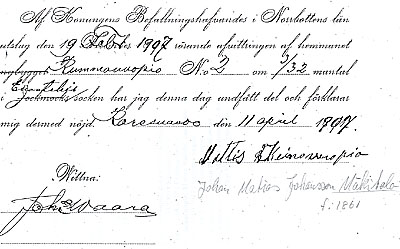 Af Konungens Befallningshafvandes i Norrbottens län
utslag den 19 Febr. 1907 rörande afvittringen af hemmanet
nybygget Kummavuopio No 2 om 7/32 mantal
i Enontekis
Jockmocks socken har jag denna dag undfått del och förklarar
mig dermed nöjd. Karesuando den 11 april 1907.
Mattis Heinovuopio
Vittna:
Johan Matias Johansson
f: 1861
Joh. Waara